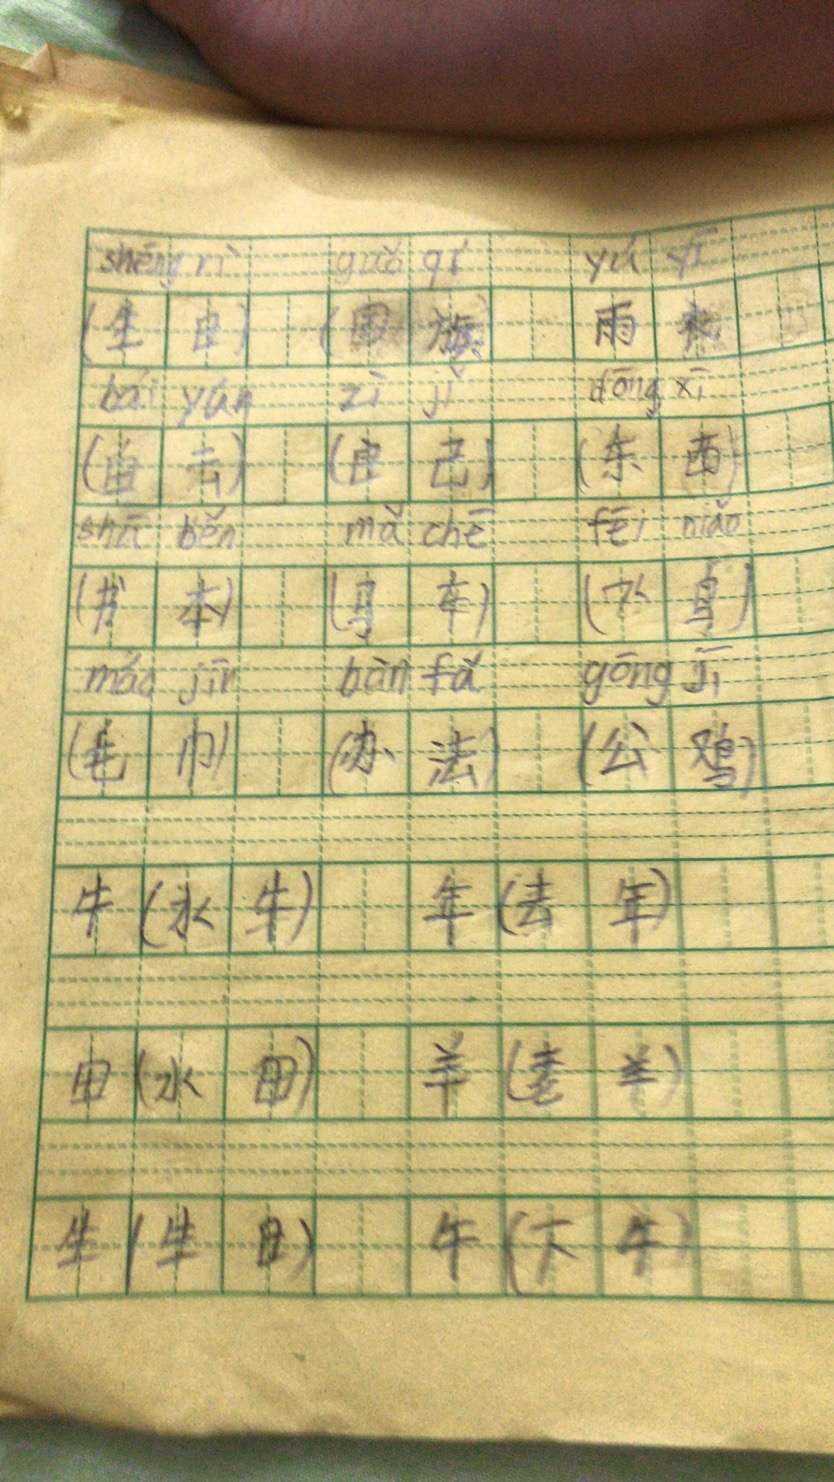 shēng rì guó qí yǔ yī
(生 日) (国 旗 雨 衣
bái yún zì jǐ dōng xī
(白 云) (自 己) (东 西)
shū běn mǎ chē fēi niǎo
(书 本) (马 车) (飞 鸟)
máo jīn bàn fǎ gōng jī
(毛 巾) (办 法) (公 鸡)
牛 (水 牛) 年 (去 年)
田 (水 田) 羊 (老 羊)
生 (生 日) 午 (下 午)